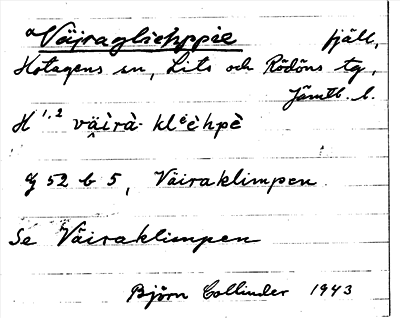 Väjragliehppie fjäll,
Hotagens sn, Lits och Rödöns tg,
Jämtl. l.
H 1,2 väìrà· klᵉèhpè
G 52 b 5, Väiraklimpen
Se Väiraklimpen
Björn Collinder 1943